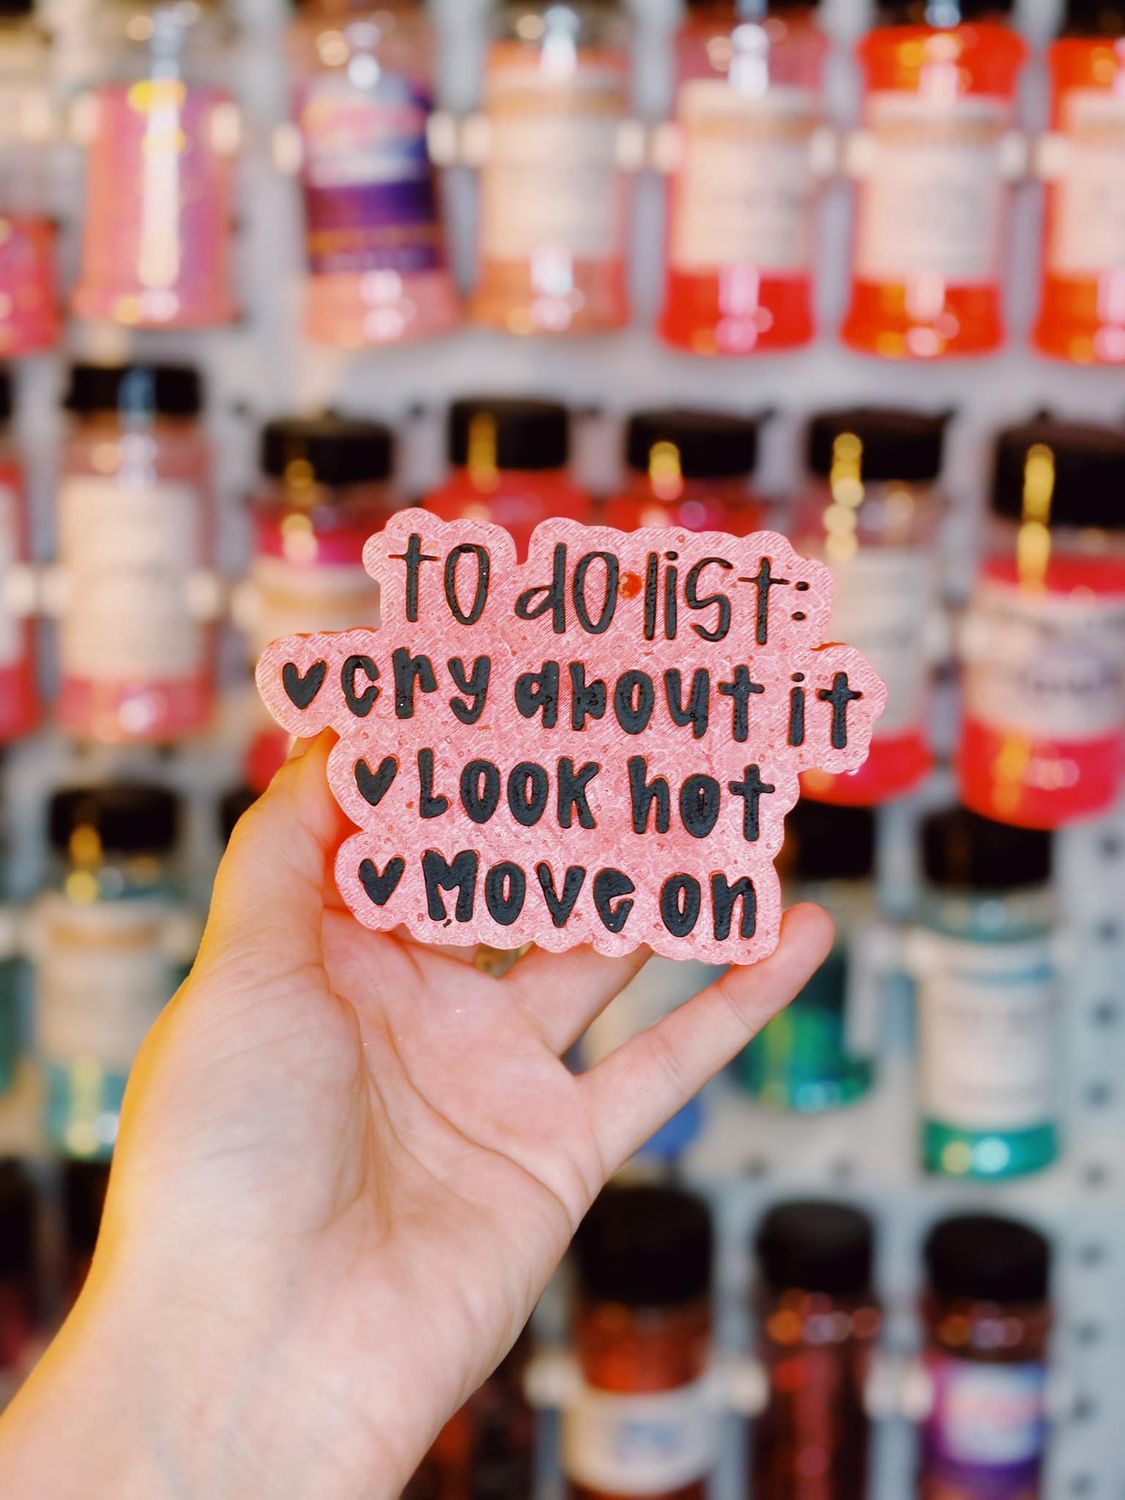 to do list:
♥ cry about it
♥ Look hot
♥ Move on